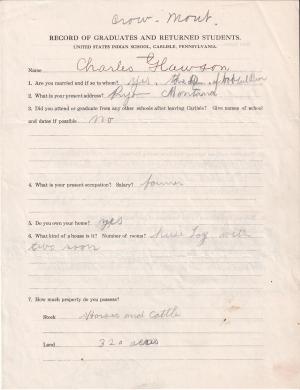 Crow - Mont.
RECORD OF GRADUATES AND RETURNED STUDENTS.
UNITED STATES INDIAN SCHOOL, CARLISLE, PENNSYLVANIA.
Name Charles Clawson
1. Are you married and if so to whom? Yes,
2. What is your present address? Pryor Montana
3. Did you attend or graduate from any other schools after leaving Carlisle? Give names of school
and dates if possible. No
4. What is your present occupation? Salary? farmer
5. Do you own your home? yes
6. What kind of a house is it? Number of rooms? Log with
two room
7. How much property do you possess?
Stock Horses and Cattle
Land 320 acres